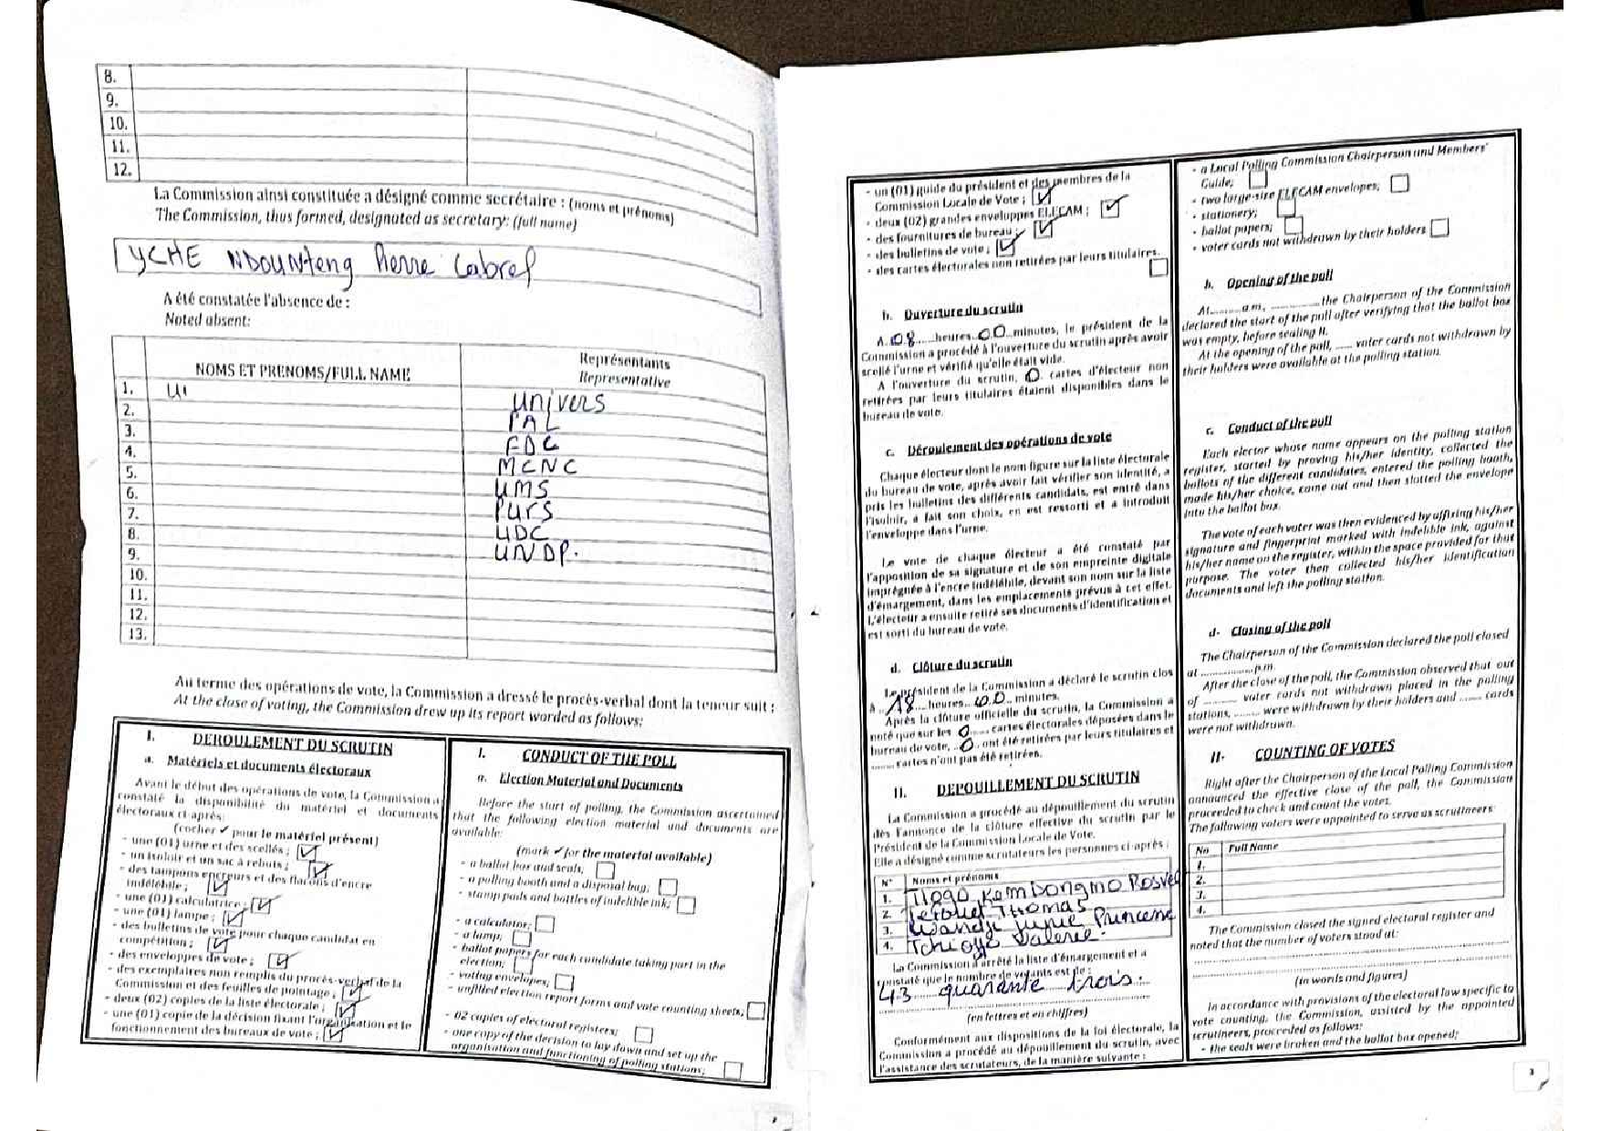 8.
9.
10.
11.
12.
La Commission ainsi constituée a désigné comme secrétaire : (noms et prénoms)
The Commission, thus formed, designated as secretary: (full name)
YCHE NDOUNTENG Pierre Cabrel
A été constatée l'absence de :
Noted absent:
NOMS ET PRENOMS/FULL NAME
Représentants
Representative
1. Ui Univers
2. PAL
3. FDC
4. MCNC
5. UMS
6. PURS
7. UDC
8. UNDP.
9.
10.
11.
12.
13.
Au terme des opérations de vote, la Commission a dressé le procès-verbal dont la teneur suit :
At the close of voting, the Commission drew up its report worded as follows:
I. DEROULEMENT DU SCRUTIN
a. Matériels et documents électoraux
Avant le début des opérations de vote, la Commission a
constaté la disponibilité du matériel et documents
électoraux ci-après:
(cocher ✓ pour le matériel présent)
- une (01) urne et des scellés ; ☑
- un isoloir et un sac à rebuts ; ☑
- des tampons encreurs et des flacons d'encre
indélébile ; ☑
- une (01) calculatrice ; ☑
- une (01) lampe ; ☑
- des bulletins de vote pour chaque candidat en
compétition ; ☑
- des enveloppes de vote ; ☑
- des exemplaires non remplis du procès-verbal de la
Commission et des feuilles de pointage ; ☑
- deux (02) copies de la liste électorale ; ☑
- une (01) copie de la décision fixant l'organisation et le
fonctionnement des bureaux de vote ; ☑
I. CONDUCT OF THE POLL
a. Election Material and Documents
Before the start of polling, the Commission ascertained
that the following election material and documents are
available:
(mark ✓ for the material available)
- a ballot box and seals; ☐
- a polling booth and a disposal bag; ☐
- stamp pads and bottles of indelible ink; ☐
- a calculator; ☐
- a lamp; ☐
- ballot papers for each candidate taking part in the
election; ☐
- voting envelopes; ☐
- unfilled election report forms and vote counting sheets; ☐
- 02 copies of electoral registers; ☐
- one copy of the decision to lay down and set up the
organisation and functioning of polling stations; ☐
- un (01) guide du président et des membres de la
Commission Locale de Vote ; ☑
- deux (02) grandes enveloppes ELECAM ; ☑
- des fournitures de bureau ; ☑
- des bulletins de vote ; ☑
- des cartes électorales non retirées par leurs titulaires. ☐
b. Ouverture du scrutin
A 08 heures 00 minutes, le président de la
Commission a procédé à l'ouverture du scrutin après avoir
scellé l'urne et vérifié qu'elle était vide.
A l'ouverture du scrutin, 0 cartes d'électeur non
retirées par leurs titulaires étaient disponibles dans le
bureau de vote.
c. Déroulement des opérations de vote
Chaque électeur dont le nom figure sur la liste électorale
du bureau de vote, après avoir fait vérifier son identité, a
pris les bulletins des différents candidats, est entré dans
l'isoloir, a fait son choix, en est ressorti et a introduit
l'enveloppe dans l'urne.
Le vote de chaque électeur a été constaté par
l'apposition de sa signature et de son empreinte digitale
imprégnée à l'encre indélébile, devant son nom sur la liste
d'émargement, dans les emplacements prévus à cet effet.
L'électeur a ensuite retiré ses documents d'identification et
est sorti du bureau de vote.
d. Clôture du scrutin
Le président de la Commission a déclaré le scrutin clos
à 18 heures 00 minutes.
Après la clôture officielle du scrutin, la Commission a
noté que sur les 0 cartes électorales déposées dans le
bureau de vote, 0 ont été retirées par leurs titulaires et
........ cartes n'ont pas été retirées.
II. DEPOUILLEMENT DU SCRUTIN
La Commission a procédé au dépouillement du scrutin
dès l'annonce de la clôture effective du scrutin par le
Président de la Commission Locale de Vote.
Elle a désigné comme scrutateurs les personnes ci-après :
N° Noms et prénoms
1. Kemdongmo Rosvel
2. Thomas
3. Wandji Junie Princesse
4. Tchioffo Valerie.
La Commission a arrêté la liste d'émargement et a
constaté que le nombre de votants est de :
43 quarante trois.
(en lettres et en chiffres)
Conformément aux dispositions de la loi électorale, la
Commission a procédé au dépouillement du scrutin, avec
l'assistance des scrutateurs, de la manière suivante :
- a Local Polling Commission Chairperson and Members'
Guide; ☐
- two large-size ELECAM envelopes; ☐
- stationery; ☐
- ballot papers; ☐
- voter cards not withdrawn by their holders ☐
b. Opening of the poll
At.........a.m, ............. the Chairperson of the Commission
declared the start of the poll after verifying that the ballot box
was empty, before sealing it.
At the opening of the poll, ..... voter cards not withdrawn by
their holders were available at the polling station.
c. Conduct of the poll
Each elector whose name appears on the polling station
register, started by proving his/her identity, collected the
ballots of the different candidates, entered the polling booth,
made his/her choice, came out and then slotted the envelope
into the ballot box.
The vote of each voter was then evidenced by affixing his/her
signature and fingerprint marked with indelible ink, against
his/her name on the register, within the space provided for that
purpose. The voter then collected his/her identification
documents and left the polling station.
d- Closing of the poll
The Chairperson of the Commission declared the poll closed
at ...............p.m.
After the close of the poll, the Commission observed that out
of ........ voter cards not withdrawn placed in the polling
stations, ........ were withdrawn by their holders and ....... cards
were not withdrawn.
II- COUNTING OF VOTES
Right after the Chairperson of the Local Polling Commission
announced the effective close of the poll, the Commission
proceeded to check and count the votes.
The following voters were appointed to serve as scrutineers:
No Full Name
1.
2.
3.
4.
The Commission closed the signed electoral register and
noted that the number of voters stood at:
(in words and figures)
In accordance with provisions of the electoral law specific to
vote counting, the Commission, assisted by the appointed
scrutineers, proceeded as follows:
- the seals were broken and the ballot box opened;
3